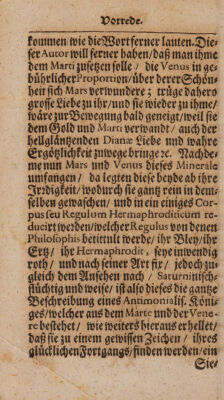 Vorrede.
kommen wie die Wort ferner lauten. Die-
ser Autor will ferner haben/ daß man ihme
dem Marti zusetzen solle / die Venus in ge-
bührlicher Proportion/ über derer Schön-
heit sich Mars verwundere; trüge dahero
grosse Liebe zu ihr/ und sie wieder zu ihme/
wäre zur Bewegung bald geneigt/ weil sie
dem Gold und Marti verwandt/ auch der
hellgläntzenden Dianæ Liebe und wahre
Ergötzlichkeit zuwege bringe ꝛc. Nachde-
me nun Mars und Venus dieses Minerale
umfangen/ da legten diese beyde ab ihre
Irdigkeit/ wodurch sie gantz rein in dem-
selben gewaschen/ und in ein einiges Cor-
pus seu Regulum Hermaphroditicum re-
ducirt werden/ welcher Regulus von denen
Philosophis betittult werde/ ihr Bley/ ihr
Ertz/ ihr Hermaphrodit, seye inwendig
roth/ und nach seiner Art fix/ jedoch zu-
gleich dem Ansehen nach/ Saturninisch-
flüchtig und weise/ ist also dieses die gantze
Beschreibung eines Antimonialis. Köni-
ges/ welcher aus dem Marte und der Vene-
re bestehet/ wie weiters hieraus erhellet/
daß sie zu einem gewissen Zeichen/ ihres
glücklichen Fortgangs/ finden werden/ ein
Sie-